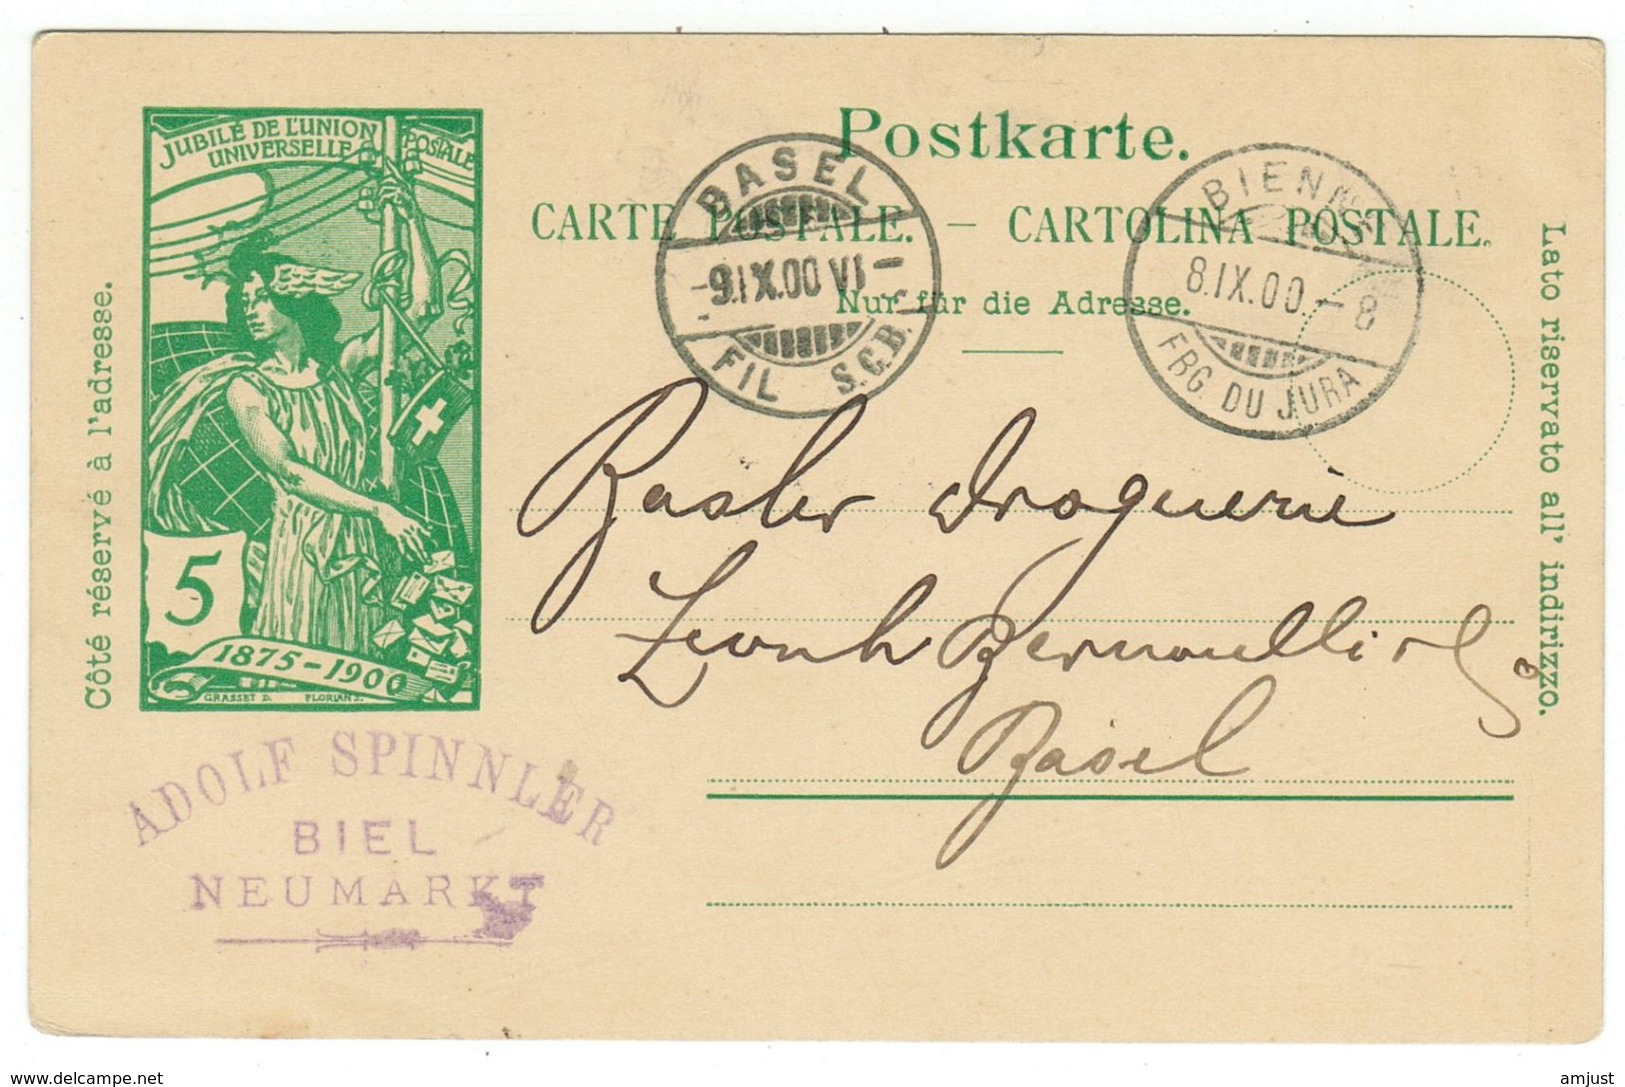 JUBILÉ DE L'UNION POSTALE
UNIVERSELLE
5
1875-1900
GRASSET D. FLORIAN S.
Côté réservé à l'adresse.
Postkarte.
CARTE POSTALE. — CARTOLINA POSTALE.
Nur für die Adresse.
Lato riservato all' indirizzo.
BASEL
-9.IX.00 VI-
FIL S.C.B.
BIENNE
8.IX.00-8
FBG. DU JURA
Basler Droguerie
Leonh Bernoulli
Basel
ADOLF SPINNLER
BIEL
NEUMARKT
www.delcampe.net
amjust